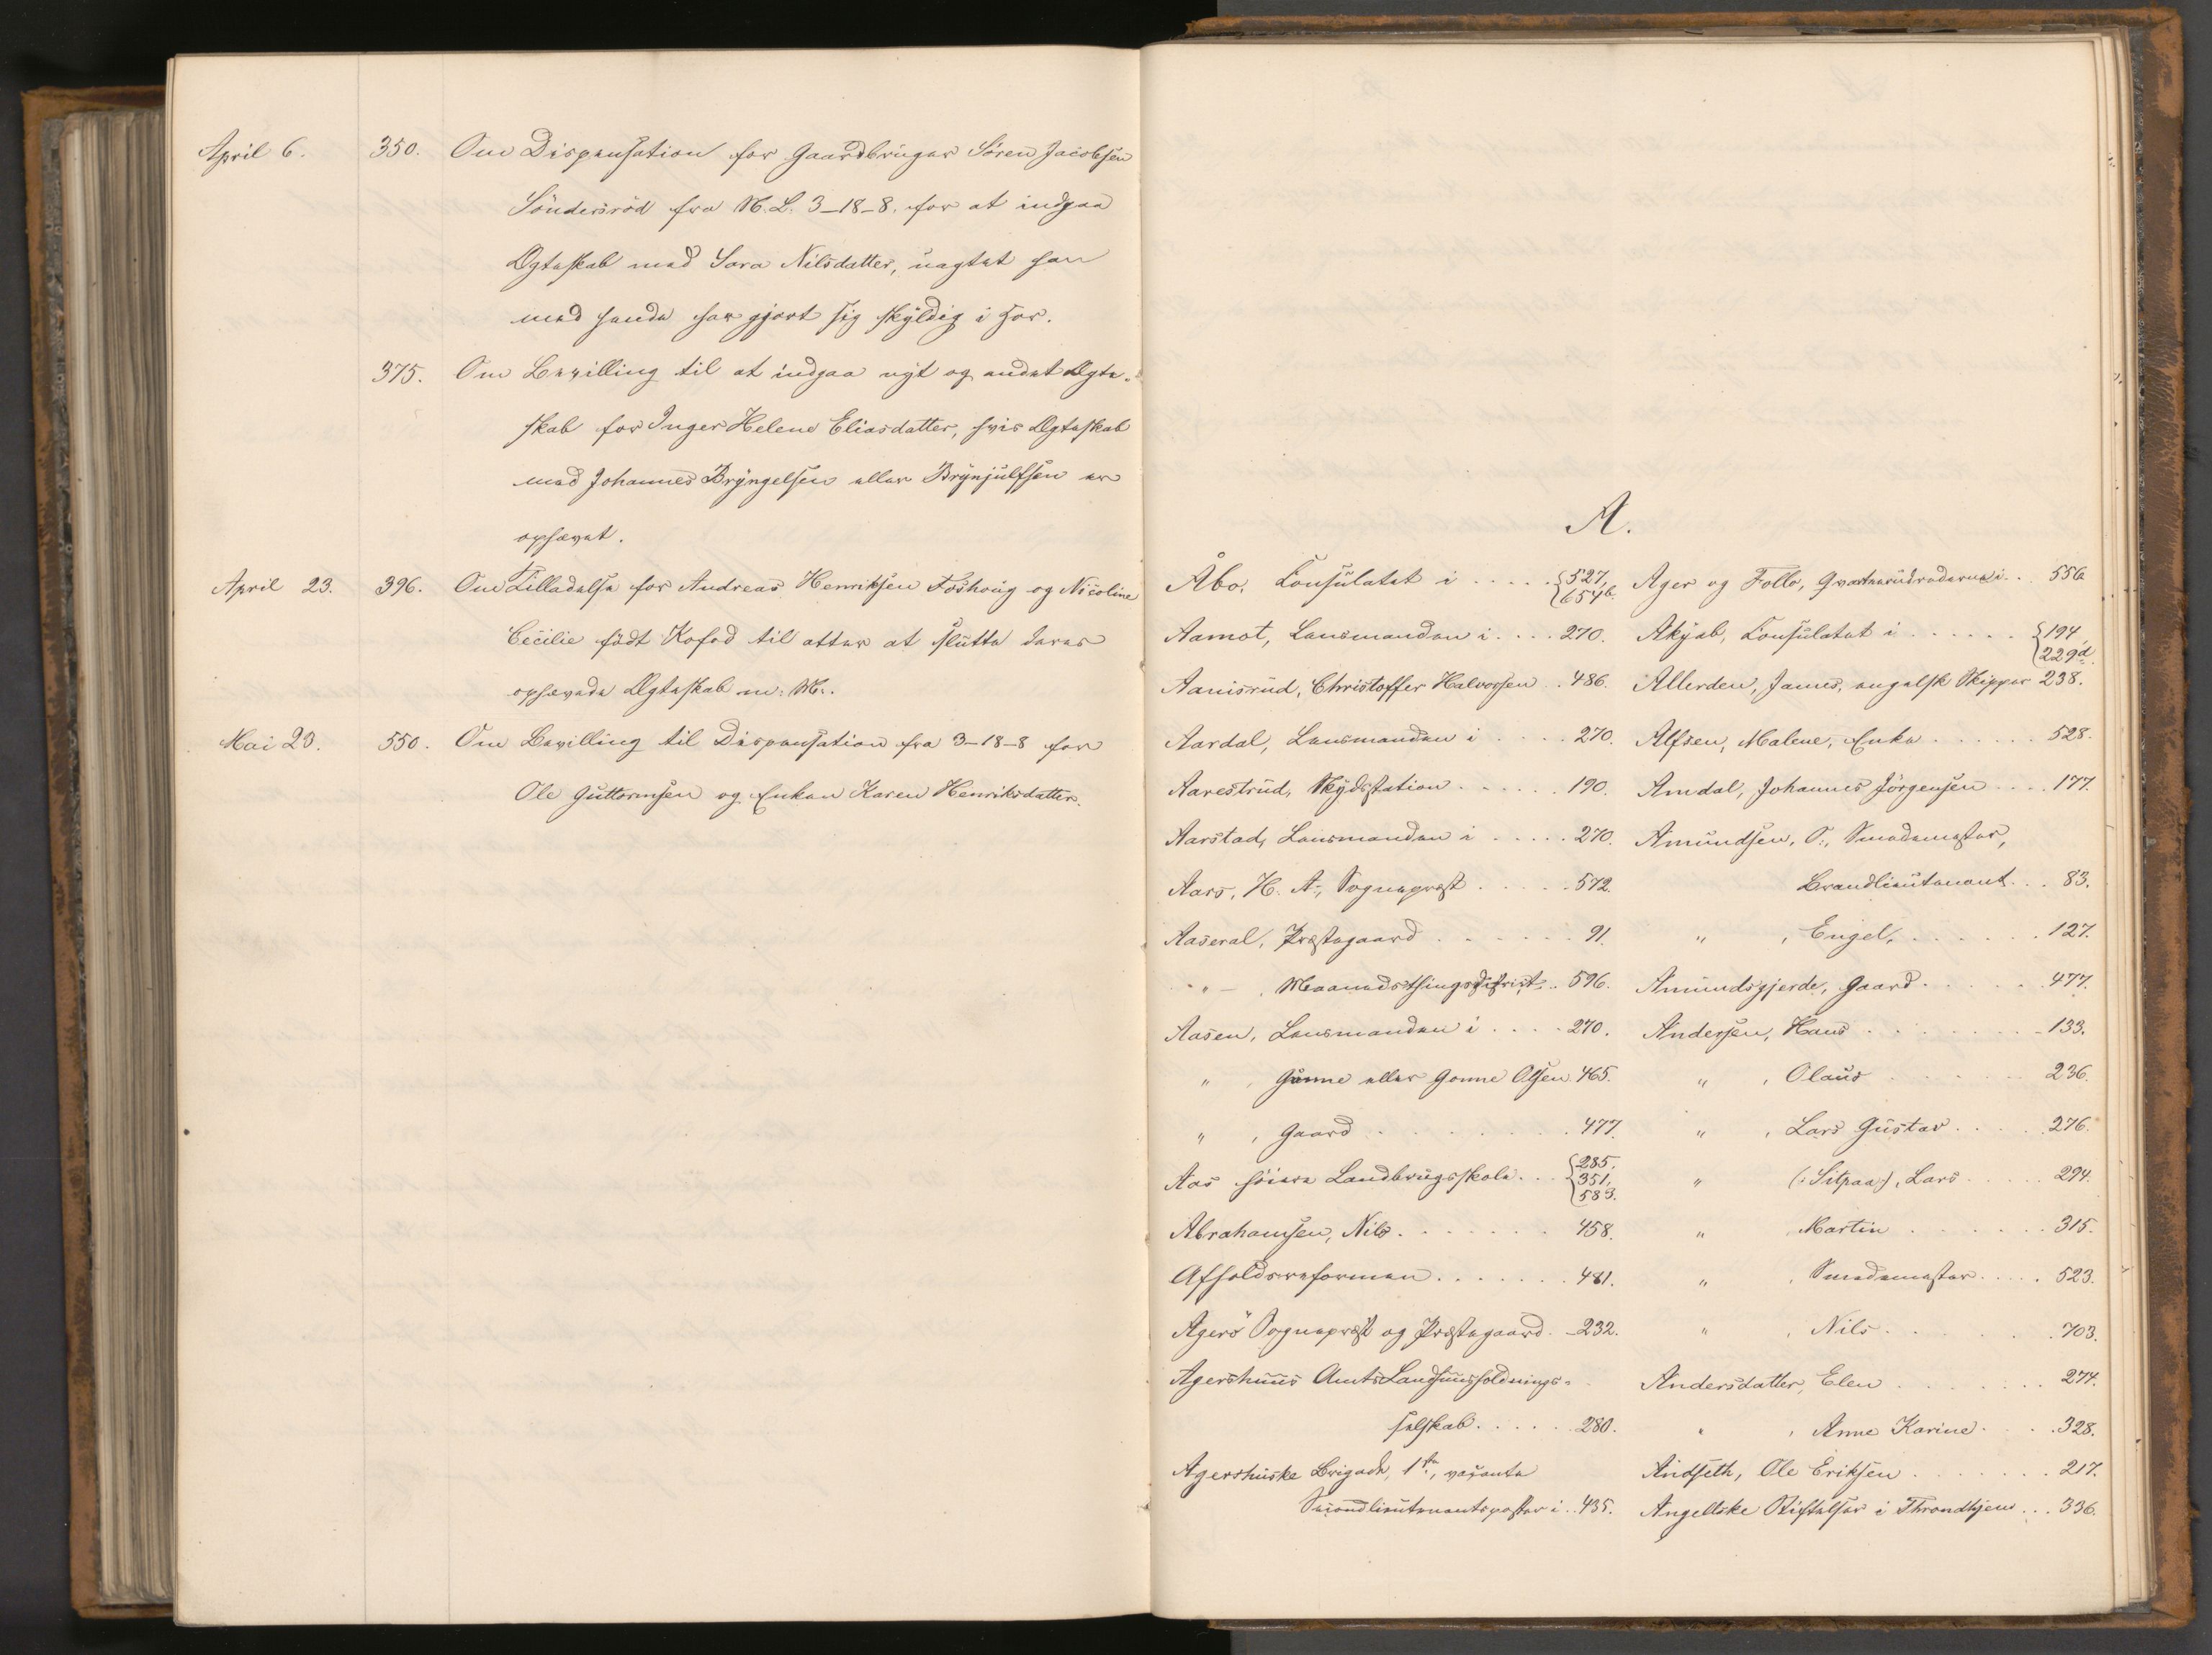 April 6. 350. Om Dispensation for Gaardbruger Sören Jacobsen
Söndersröd fra N. L. 3-18-8. for at indgaa
Ægteskab med Sara Nilsdatter, uagtet han
med hende har gjort sig skyldig i Hor.
375. Om Bevilling til at indgaa nyt og andet Ægte-
skab for Inger Helene Eliasdatter, hvis Ægteskab
med Johannes Bryngelsen eller Brynjulfsen er
ophævet.
April 23. 396. Om Tilladelse for Andreas Henriksen Foshoug og Nicoline
Cecilie födt Kofod til atter at slutte deres
ophævede Ægteskab m: M:.
Mai 23. 550. Om Bevilling til Dispensation fra 3-18-8 for
Ole Guttormsen og Enken Karen Henriksdatter.
A.
Åbo, Consulatet i . . . . . 527, 654b.
Aamot, Lensmanden i . . . . 270.
Aanisrud, Christoffer Halvorsen . . 486.
Aardal, Lensmanden i . . . . 270.
Aarestrud, Skydsstation . . . . . . 190.
Aarstad, Lensmanden i . . . . . 270.
Aars, H. A., Sognepræst . . . . . 572.
Aaseral, Præstegaard . . . . . . . 91.
" , Maanedsthingsdistrict . . 596.
Aasen, Lensmanden i . . . . 270.
" , Gunne eller Gonne Olsen 465.
" , Gaard . . . . . . . . 477.
Aas höiere Landbrugsskole . . . 285, 351, 583.
Abrahamsen, Nils . . . . . . . 458.
Afholdsreformen . . . . . . . 481.
Agerö Sognepræst og Præstegaard . 232.
Agershuus Amts Landhuusholdnings-
selskab . . . . . 280.
Agershuske Brigade, 1ste, vacante
Secondlieutenantsposter i . . 435.
Ager og Follo, i . . 556
Akyab, Consulatet i . . . . . . 194, 229d.
Allerden, James, engelsk Skipper 238.
Alfsen, Malene, Enke . . . . . . 528.
Amdal, Johannes Jörgensen . . . . 177.
Amundsen, O., Smedemester,
Brandlieutenant . . . 83.
" , Engel, . . . . . . . 127.
Amundsgjerde, Gaard . . . . . . 477.
Andersen, Hans . . . . . . . . 133.
" , Olaus . . . . . . 236.
" , Lars Gustav . . . . . 276.
" (: Sitpaa), Lars . . . . . 294.
" , Martin . . . . . . . 315.
" , Smedemester . . . . . 523.
" , Nils . . . . . . . . 703.
Andersdatter, Elen . . . . . . . . 274.
" , Anne Karine . . . . 328.
Andseth, Ole Eriksen . . . . . . . 217.
Angellske Stiftelser i Throndhjem . . . 336.